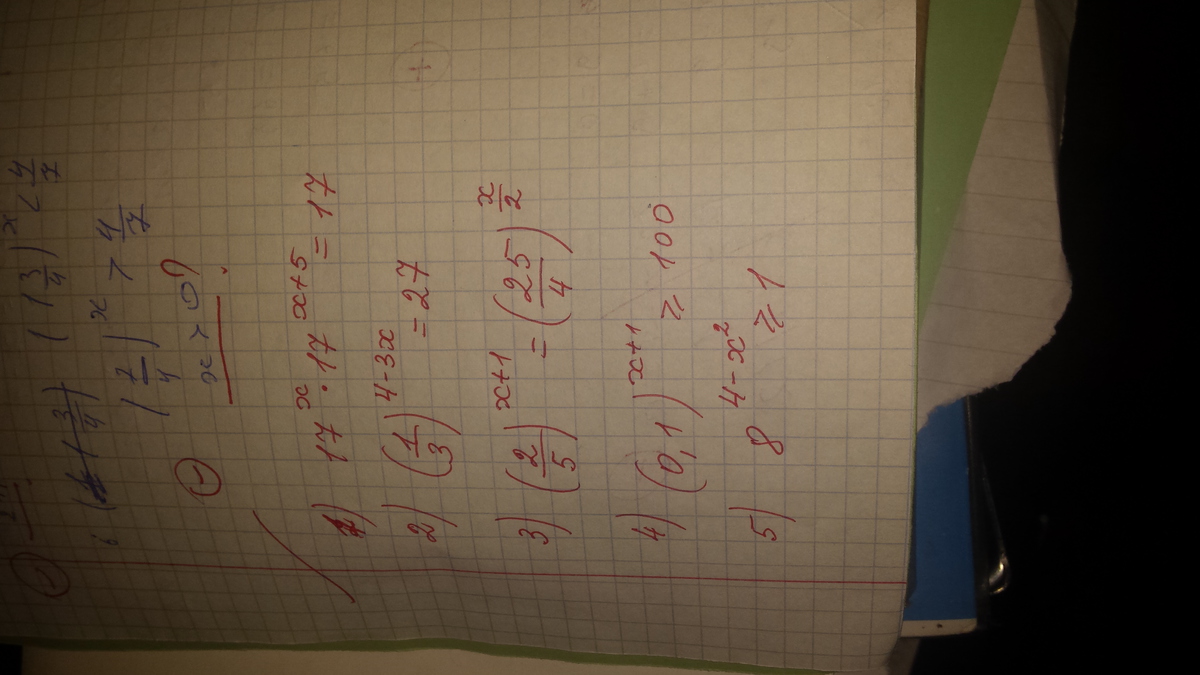 (1 3/4)^x < 4/7
(7/4)^x > 4/7
x > 0?
1) 17^x · 17^(x+5) = 17
2) (1/3)^(4-3x) = 27
3) (2/5)^(x+1) = (25/4)^(x/2)
4) (0,1)^(x+1) ≥ 100
5) 8^(4-x²) ≥ 1